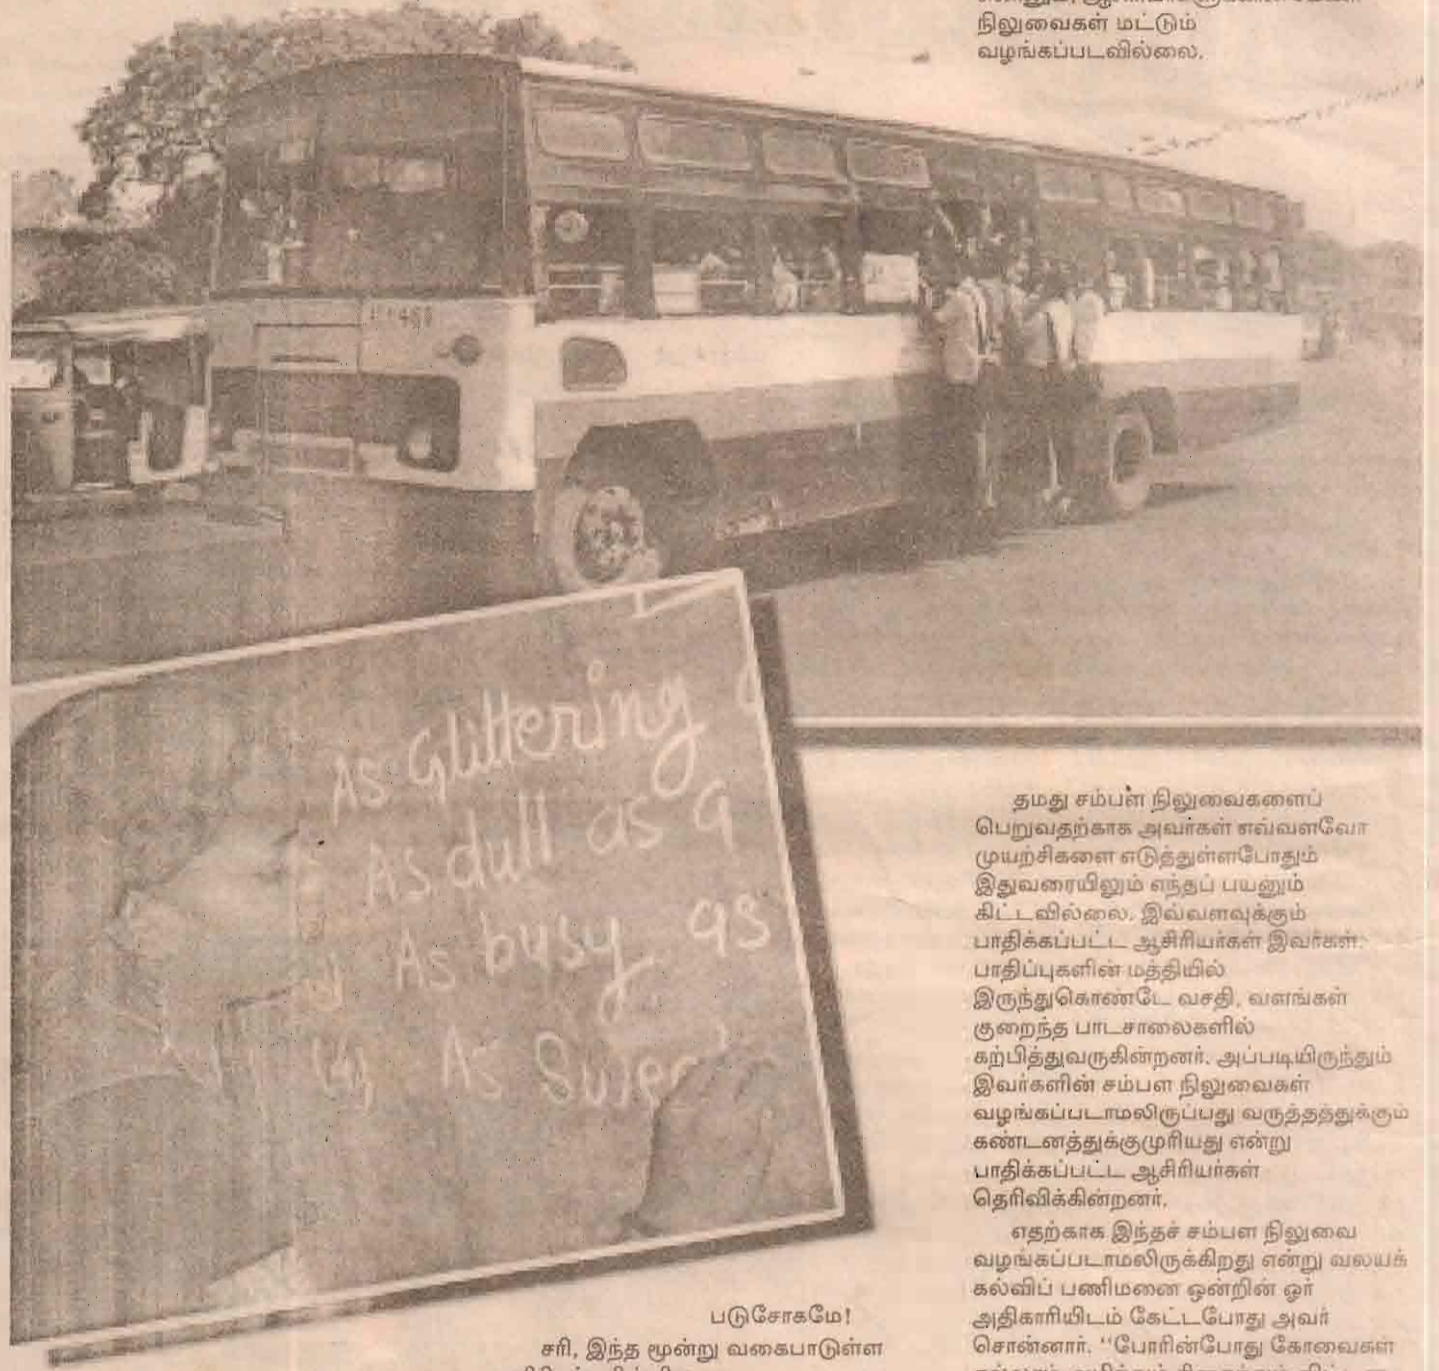 நிலுவைகள் மட்டும்
வழங்கப்படவில்லை.
As Glittering
As dull as a
As busy as
As Sweet
தமது சம்பள நிலுவைகளைப்
பெறுவதற்காக அவர்கள் எவ்வளவோ
முயற்சிகளை எடுத்துள்ளபோதும்
இதுவரையிலும் எந்தப் பயனும்
கிட்டவில்லை. இவ்வளவுக்கும்
பாதிக்கப்பட்ட ஆசிரியர்கள் இவர்கள்.
பாதிப்புகளின் மத்தியில்
இருந்துகொண்டே வசதி, வளங்கள்
குறைந்த பாடசாலைகளில்
கற்பித்துவருகின்றனர். அப்படியிருந்தும்
இவர்களின் சம்பள நிலுவைகள்
வழங்கப்படாமலிருப்பது வருத்தத்துக்கும்
கண்டனத்துக்குமுரியது என்று
பாதிக்கப்பட்ட ஆசிரியர்கள்
தெரிவிக்கின்றனர்.
எதற்காக இந்தச் சம்பள நிலுவை
வழங்கப்படாமலிருக்கிறது என்று வலயக்
கல்விப் பணிமனை ஒன்றின் ஓர்
அதிகாரியிடம் கேட்டபோது அவர்
சொன்னார். "போரின்போது கோவைகள்
படுசோகமே!
சரி, இந்த மூன்று வகைபாடுள்ள